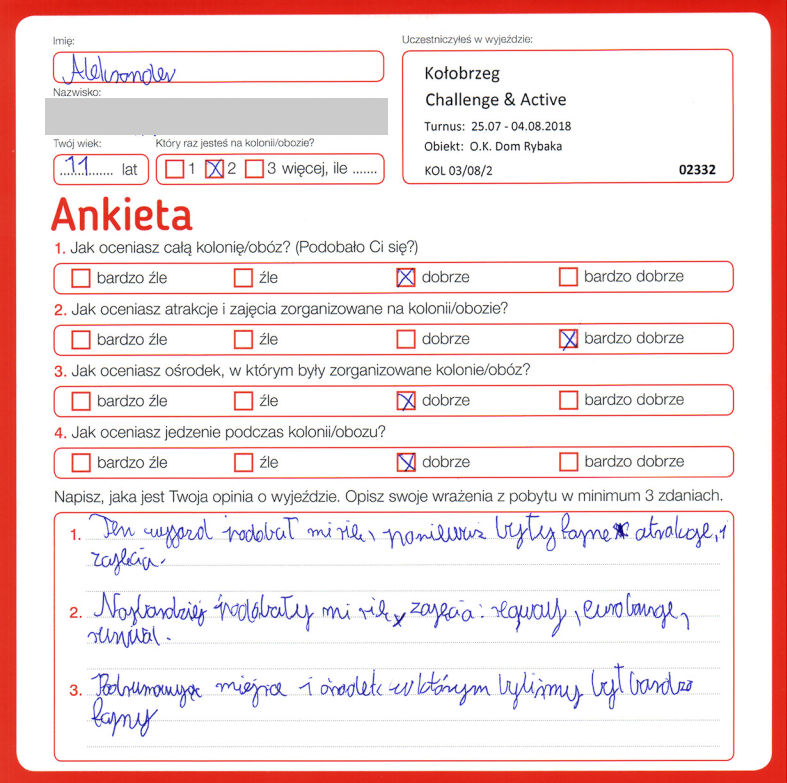 Imię:
Aleksander
Nazwisko:
Twój wiek:
11 lat
Który raz jesteś na kolonii/obozie?
1 2 3 więcej, ile .......
Uczestniczyłeś w wyjeździe:
Kołobrzeg
Challenge & Active
Turnus: 25.07 - 04.08.2018
Obiekt: O.K. Dom Rybaka
KOL 03/08/2 02332
Ankieta
1. Jak oceniasz całą kolonię/obóz? (Podobało Ci się?)
bardzo źle źle dobrze bardzo dobrze
2. Jak oceniasz atrakcje i zajęcia zorganizowane na kolonii/obozie?
bardzo źle źle dobrze bardzo dobrze
3. Jak oceniasz ośrodek, w którym były zorganizowane kolonie/obóz?
bardzo źle źle dobrze bardzo dobrze
4. Jak oceniasz jedzenie podczas kolonii/obozu?
bardzo źle źle dobrze bardzo dobrze
Napisz, jaka jest Twoja opinia o wyjeździe. Opisz swoje wrażenia z pobytu w minimum 3 zdaniach.
1. Ten wyjazd podobał mi się, ponieważ były fajne atrakcje, i
zajęcia.
2. Najbardziej podobały mi się zajęcia: segway, eurobunge,
surwiwal.
3. Podsumowując miejsce i ośrodek w którym byliśmy był bardzo
fajny